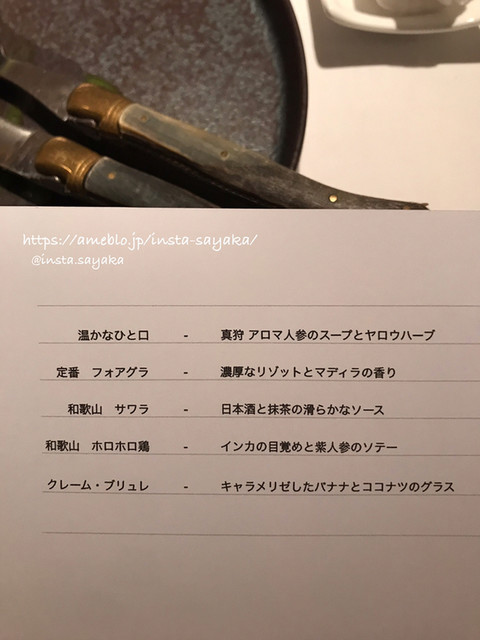 https://ameblo.jp/insta-sayaka/
@insta.sayaka
温かなひと口 - 真狩 アロマ人参のスープとヤロウハーブ
定番 フォアグラ - 濃厚なリゾットとマディラの香り
和歌山 サワラ - 日本酒と抹茶の滑らかなソース
和歌山 ホロホロ鶏 - インカの目覚めと紫人参のソテー
クレーム・ブリュレ - キャラメリゼしたバナナとココナツのグラス